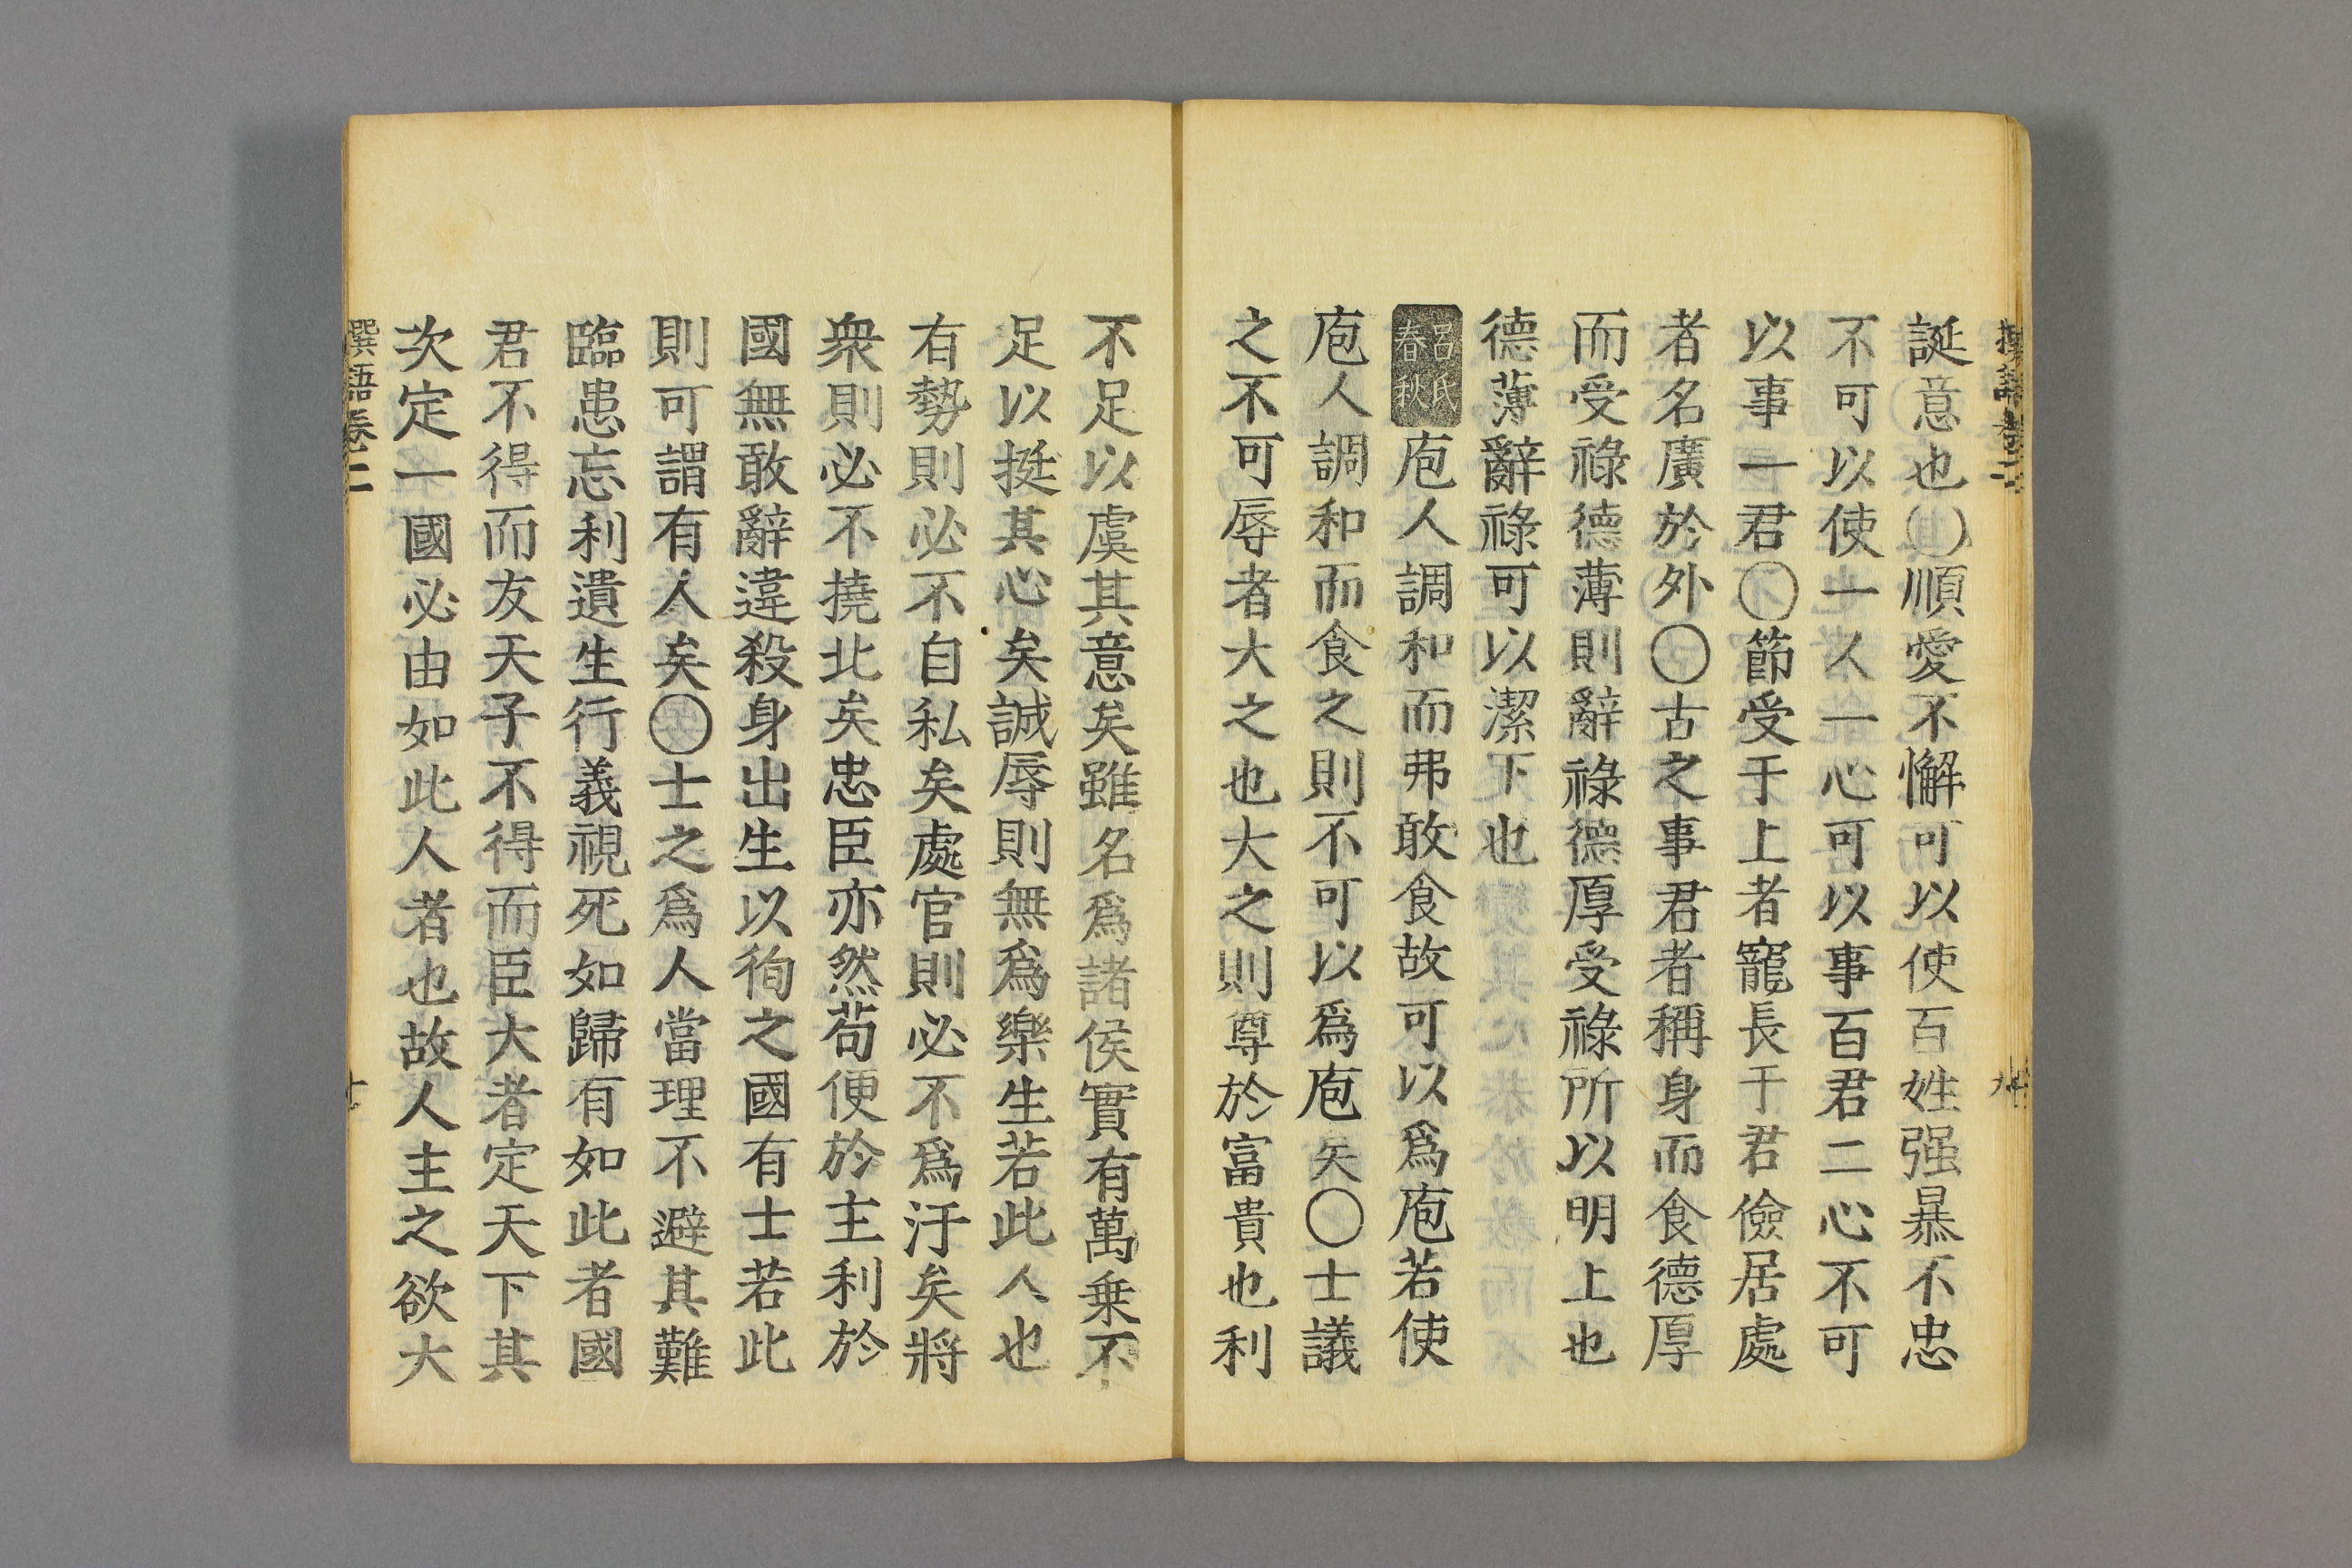 誕意也〇順愛不懈可以使百姓强暴不忠
不可以使一人一心可以事百君二心不可
以事一君〇節受于上者寵長于君儉居處
者名廣於外〇古之事君者稱身而食德厚
而受祿德薄則辭祿德厚受祿所以明上也
德薄辭祿可以潔下也
呂氏春秋 庖人調和而弗敢食故可以爲庖若使
庖人調和而食之則不可以爲庖矣〇士議
之不可辱者大之也大之則尊於富貴也利
不足以虞其意矣雖名爲諸侯實有萬乗不
足以挺其心矣誠辱則無爲樂生若此人也
有勢則必不自私矣處官則必不爲汙矣將
衆則必不撓北矣忠臣亦然苟便於主利於
國無敢辭違殺身出生以徇之國有士若此
則可謂有人矣〇士之爲人當理不避其難
臨患忘利遺生行義視死如歸有如此者國
君不得而友天子不得而臣大者定天下其
次定一國必由如此人者也故人主之欲大
撰語卷二